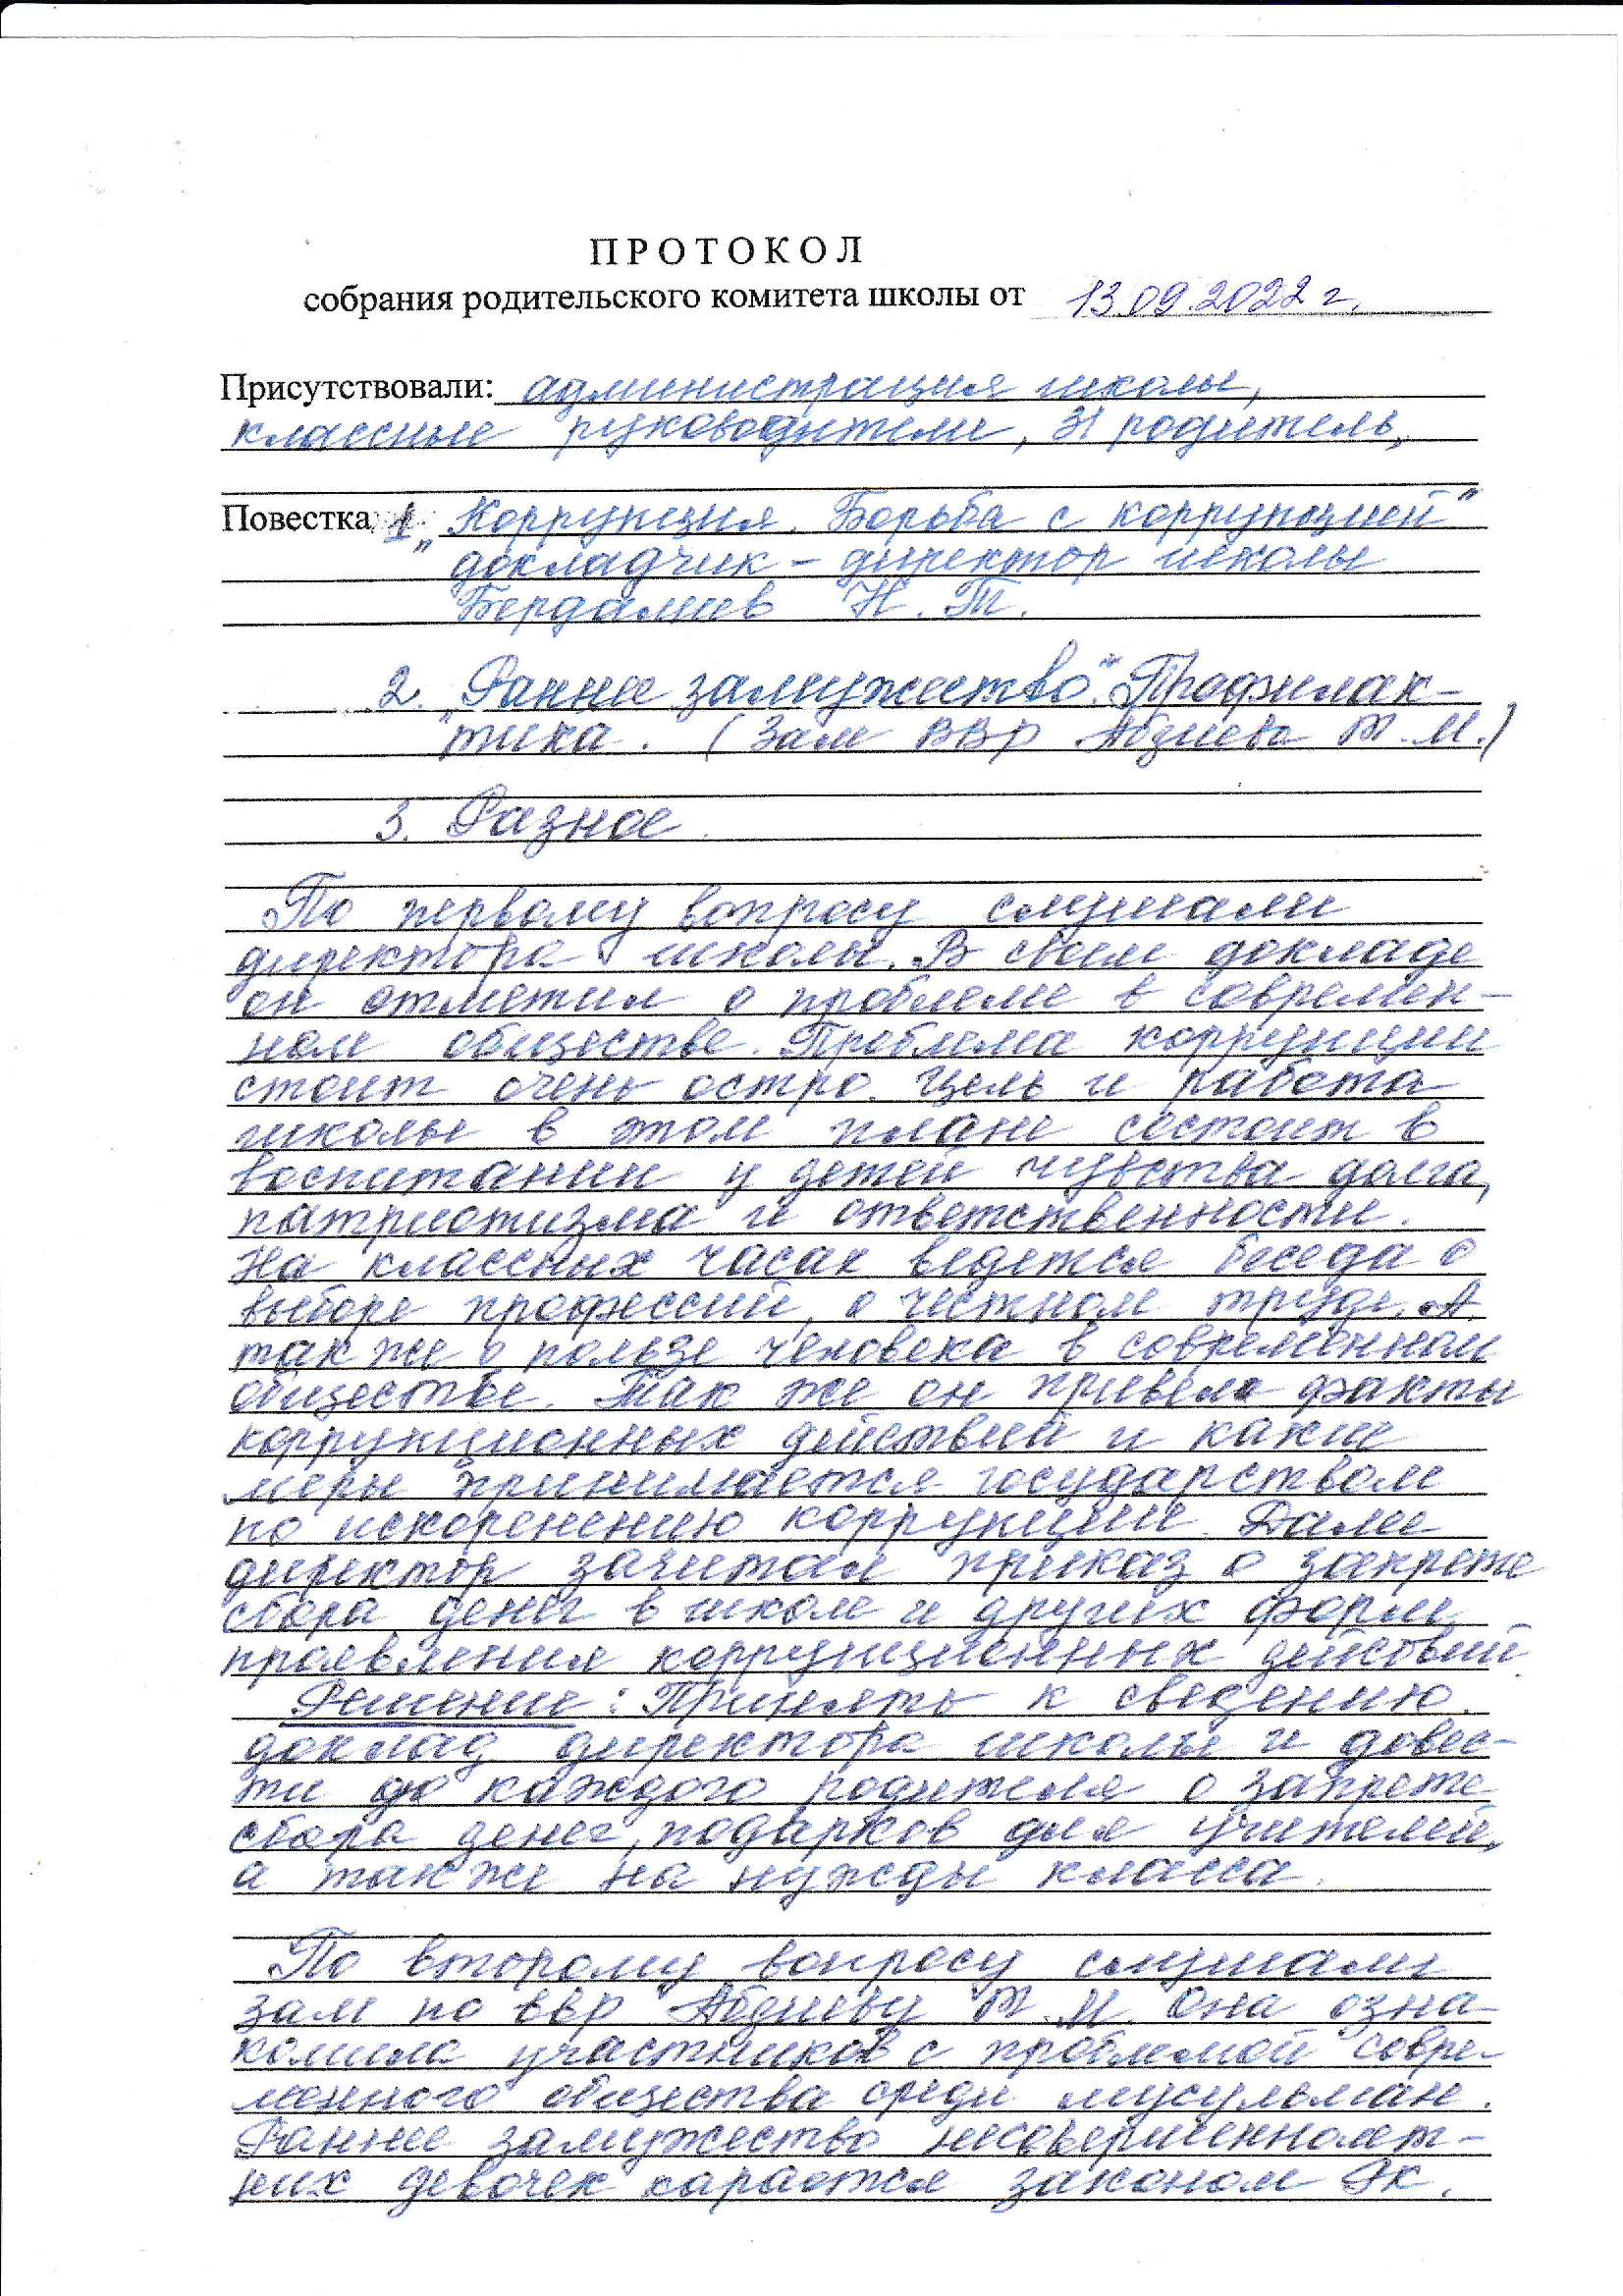 ПРОТОКОЛ
собрания родительского комитета школы от 13.09.2022 г.
Присутствовали: администрация школы,
классные руководители, 31 родитель,
Повестка 1. „Коррупция. Борьба с коррупцией"
докладчик – директор школы
Бердалиев Н. Т.
2. „Раннее замужество". Профилак-
тика. (Зам ВВР Абдиева Т. М.)
3. Разное.
По первому вопросу слушали
директора школы. В своем докладе
он отметил о проблеме в современ-
ном обществе. Проблема коррупции
стоит очень остро. Цель и работа
школы в этом плане состоит в
воспитании у детей чувства долга,
патриотизма и ответственности.
На классных часах ведется беседа о
выборе профессий, о честном труде. А
так же о пользе человека в современном
обществе. Так же он привел факты
коррупционных действий и какие
меры принимается государством
по искоренению коррупции. Далее
директор зачитал приказ о запрете
сбора денег в школе и других форм
проявления коррупционных действий.
Решение: Принять к сведению
доклад директора школы и довес-
ти до каждого родителя о запрете
сбора денег, подарков для учителей,
а также на нужды класса.
По второму вопросу слушали
зам по ввр Абдиеву Т. М. Она озна-
комила участников с проблемой совре-
менного общества среди мусульман.
Раннее замужество несовершеннолет-
них девочек карается законом РК.